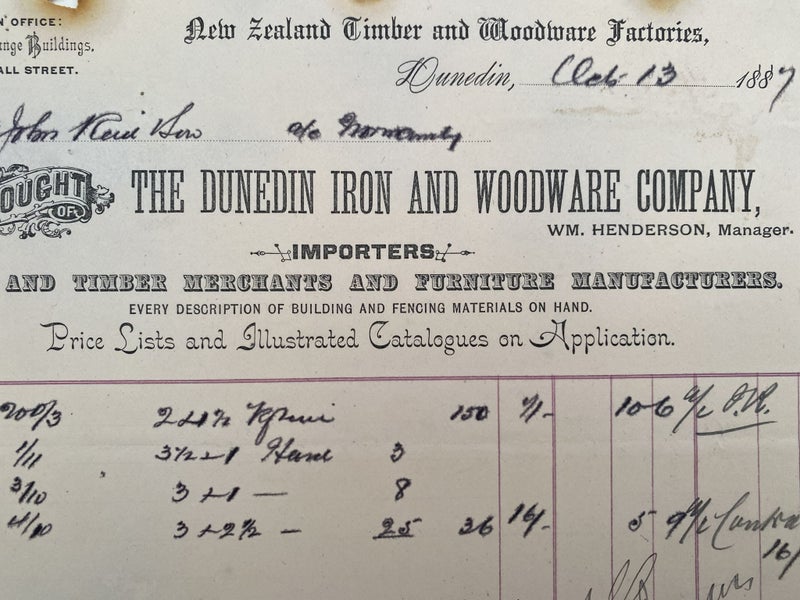 N' OFFICE:
ange Buildings,
ALL STREET.
New Zealand Timber and Woodware Factories,
Dunedin, Oct 13 1887
John Reid Son a/c Normanby
OUGHT OF
THE DUNEDIN IRON AND WOODWARE COMPANY,
WM. HENDERSON, Manager.
IMPORTERS
AND TIMBER MERCHANTS AND FURNITURE MANUFACTURERS.
EVERY DESCRIPTION OF BUILDING AND FENCING MATERIALS ON HAND.
Price Lists and Illustrated Catalogues on Application.
200/3 2 x 1½ 150 7/- 10 6
1/11 3½ x 1 3
3/10 3 x 1 — 8
4/10 3 x 2½ — 25 36 16/- 5 9
16/